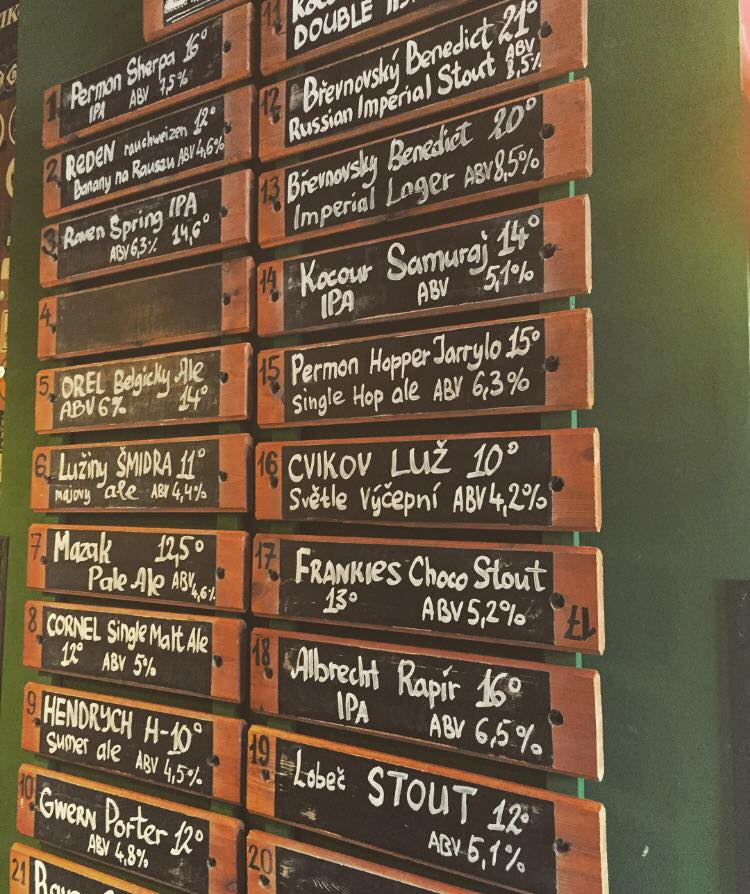 1 Permon Sherpa 16°
IPA ABV 7,5%
2 REDEN rauchweizen 12°
Banany na Rauszu ABV 4,6%
3 Raven Spring IPA
ABV 6,3% 14,6°
4
5 OREL Belgický Ale
ABV 6% 14°
6 Lužiny ŠMIDRA 11°
májový ale ABV 4,4%
7 Mazak 12,5°
Pale Ale ABV 4,6%
8 CORNEL Single Malt Ale
12° ABV 5%
9 HENDRYCH H-10°
Sumer ale ABV 4,5%
10 GWERN Porter 12°
ABV 4,8%
21
11
DOUBLE
12 Břevnovský Benedict 21°
Russian Imperial Stout ABV 8,5%
13 Břevnovský Benedict 20°
Imperial Lager ABV 8,5%
14 Kocour Samuraj 14°
IPA ABV 5,1%
15 Permon Hopper Jarrylo 15°
Single Hop ale ABV 6,3%
16 CVIKOV LUŽ 10°
Světle Výčepní ABV 4,2%
17 FRANKIES Choco Stout
13° ABV 5,2% 17
18 Albrecht Rapír 16°
IPA ABV 6,5%
19 Lobeč STOUT 12°
ABV 5,1%
20